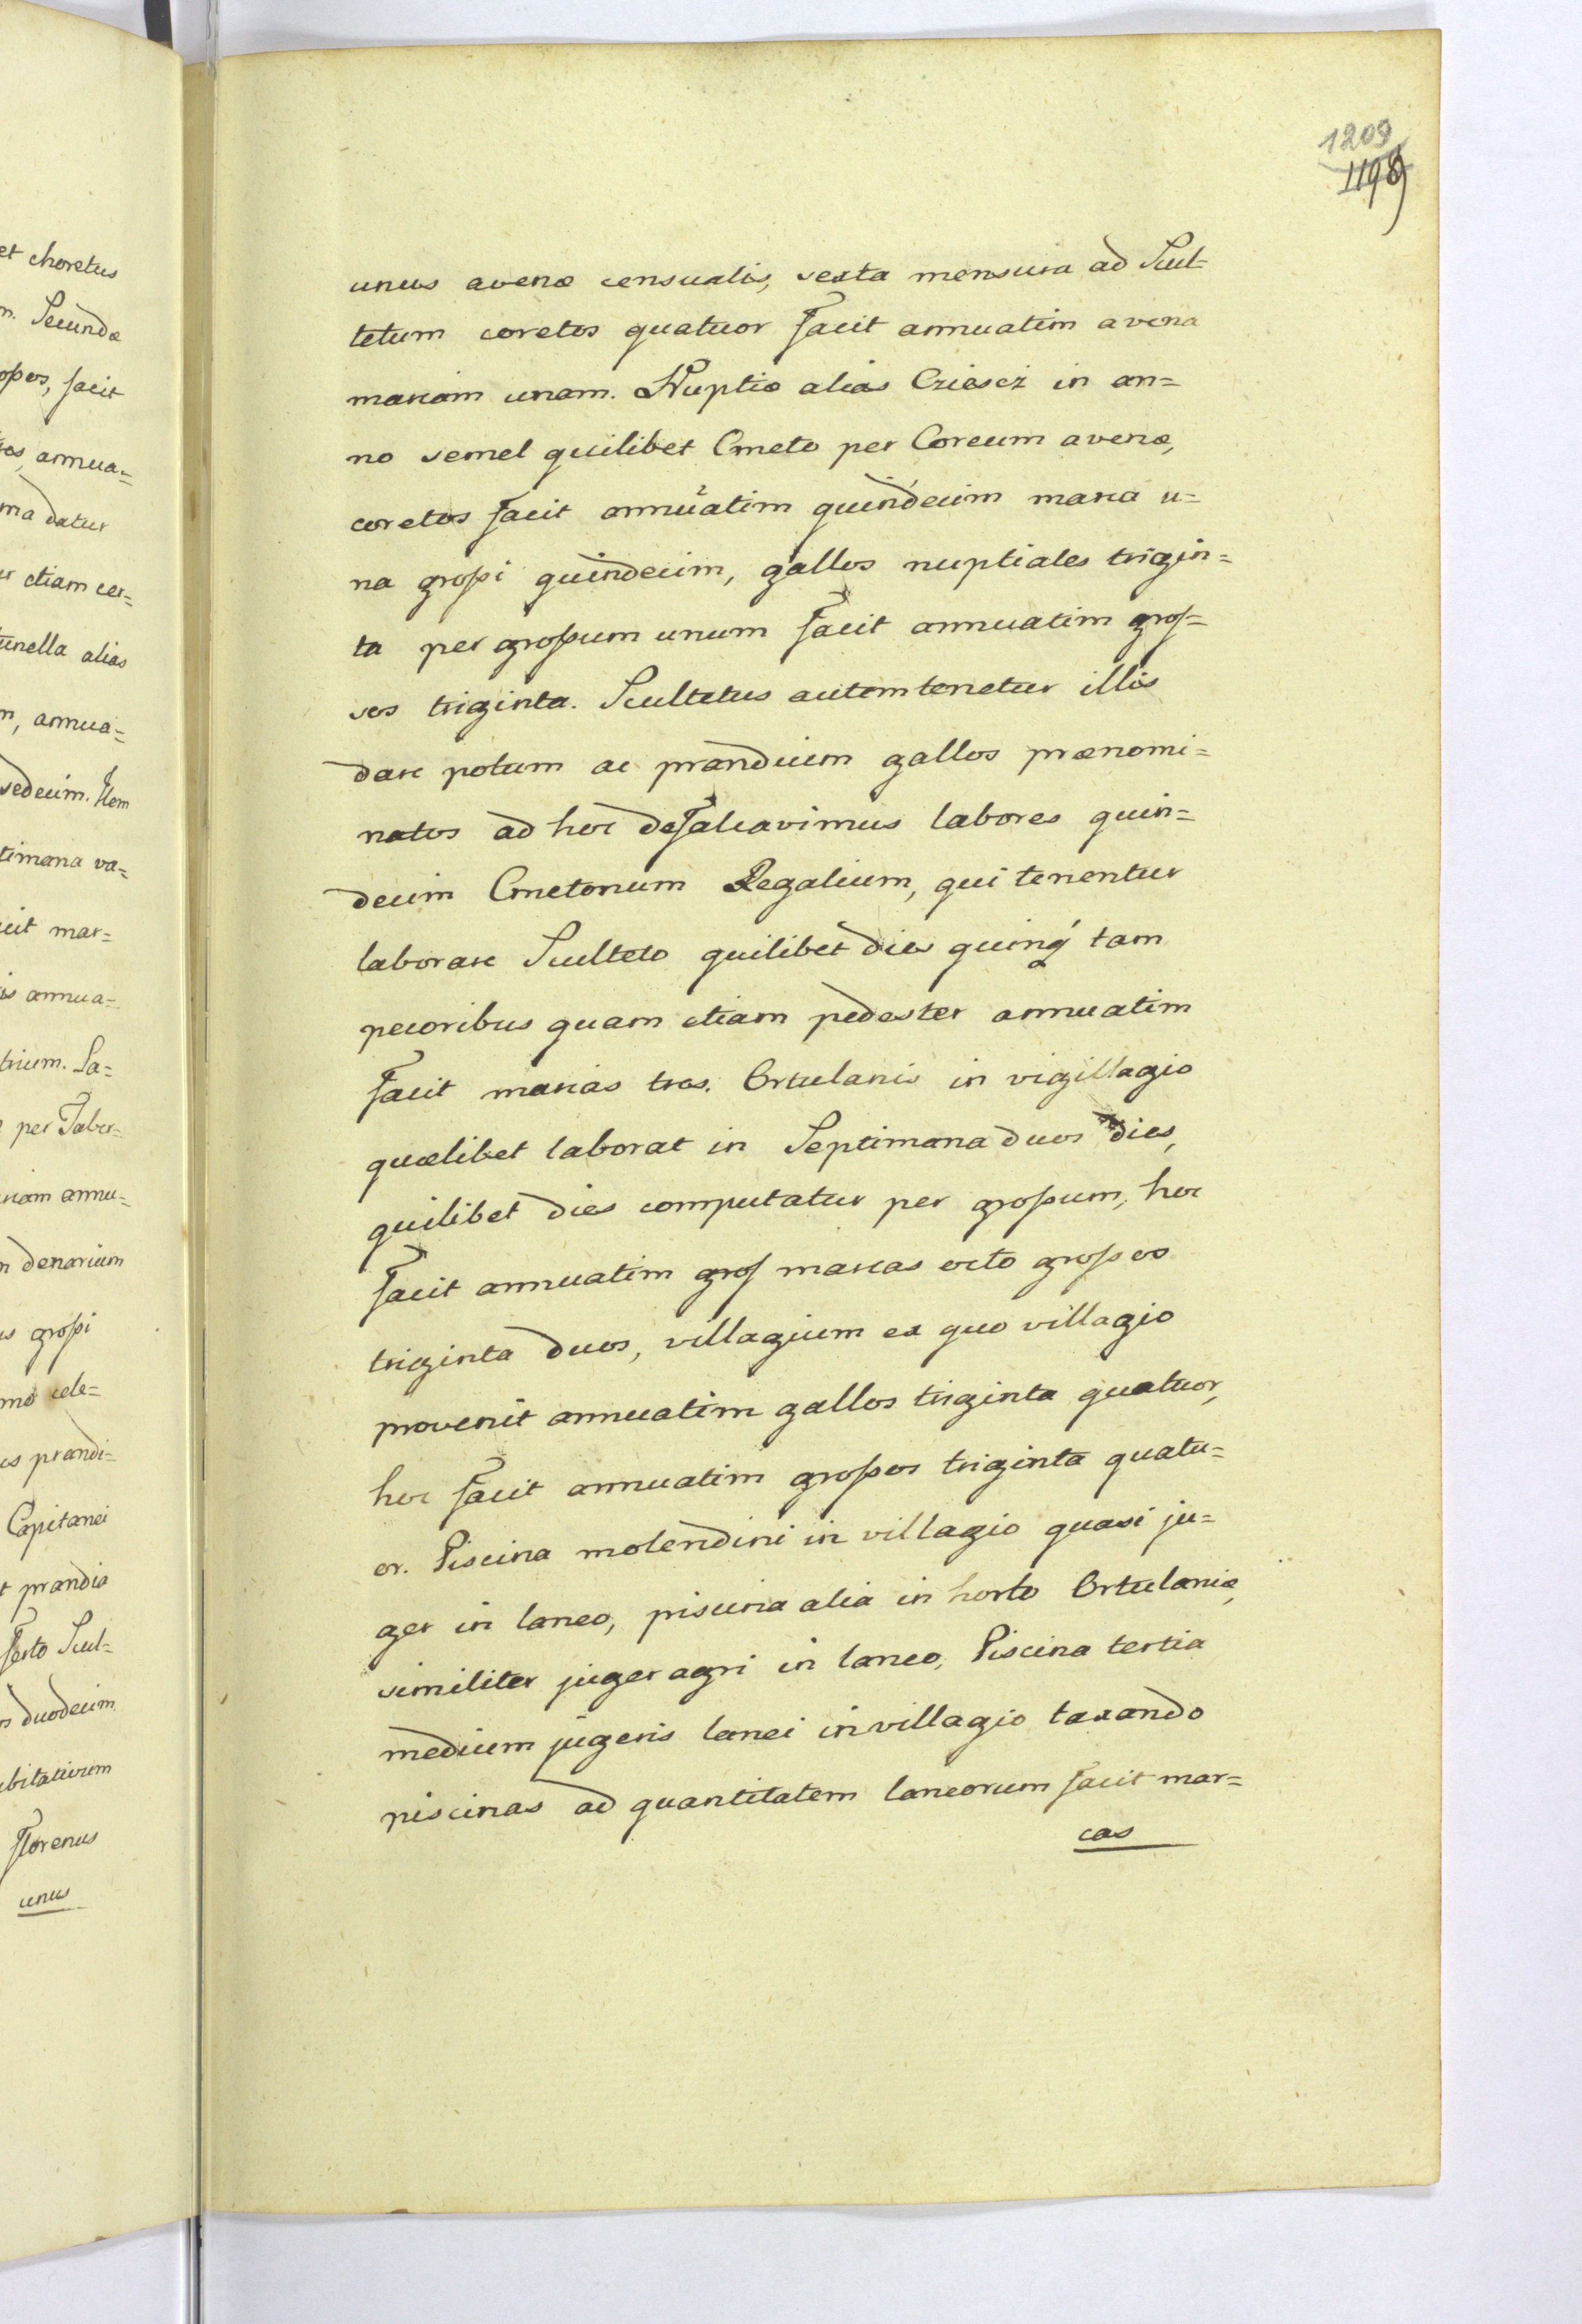 et choretus
m. Secunda
opos, facit
annua=
ma datur
etiam cer=
unella alias
m, annua=
sedecim. Item
timana va=
cit mar=
is annua=
trium. La=
per Taber=
annu=
denarium
grossi
cele=
prandi=
Capitanei
prandia
festo Scul=
duodecim
Florenus
unus
1209
1198
unus avenæ censualis, sexta mensura ad Scul=
tetum coretos quatuor facit annuatim avena
marcam unam. Nuptiæ alias Cziescz in an=
no semel quilibet Cmeto per Coreum avenæ,
coretos facit annuatim quindecim marca u=
na grossi quindecim, gallos nuptiales trigin=
ta per grossum unum facit annuatim gros=
sos triginta. Scultetus autem tenetur illis
dare potum ac prandium gallos prænomi=
natos ad hoc defalcavimus labores quin=
decim Cmetonum Regalium, qui tenentur
laborare Sculteto quilibet dies quinq́ tam
pecoribus quam etiam pedester annuatim
facit marcas tres. Ortulanis in vigillagio
quælibet laborat in Septimana duos dies,
quilibet dies computatur per grossum, hoc
facit annuatim gros marcas octo grossos
triginta duos, villagium ex quo villagio
provenit annuatim gallos triginta quatuor,
hoc facit annuatim grossos triginta quatu=
or. Piscina molendini in villagio quasi ju=
ger in laneo, piscina alia in horto Ortulaniæ,
similiter juger agri in laneo, Piscina tertia
medium jugeris lanei in villagio taxando
piscinas ad quantitatem laneorum facit mar=
cas